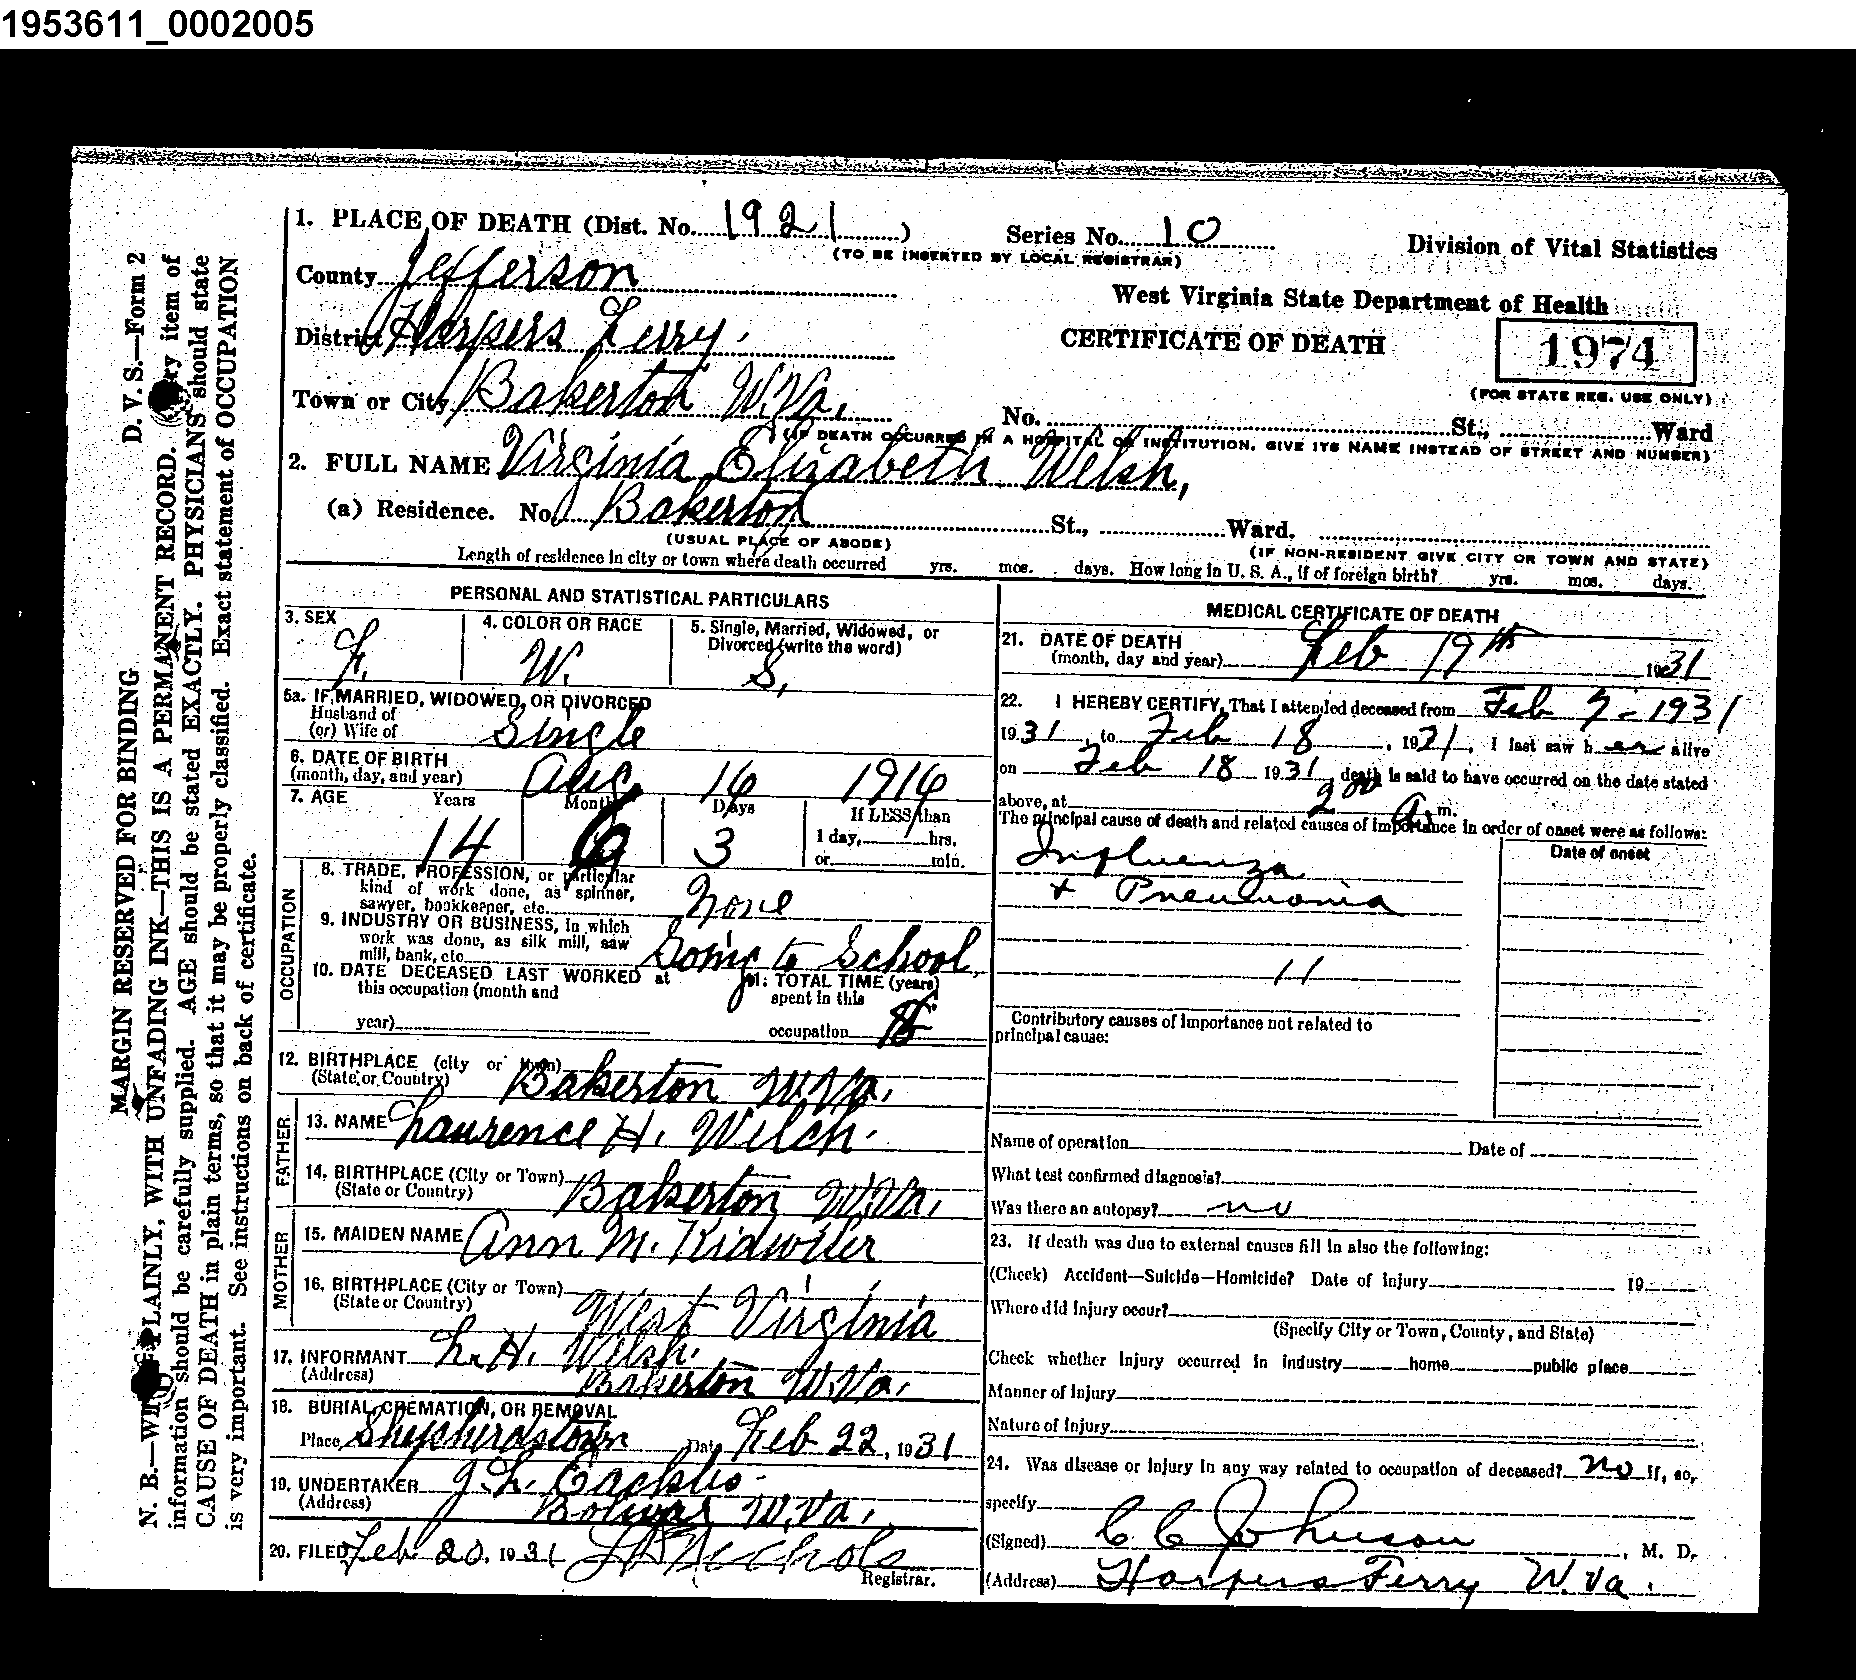 1953611_0002005
1. PLACE OF DEATH (Dist. No. 1921) Series No. 10 Division of Vital Statistics
(TO BE INSERTED BY LOCAL REGISTRAR)
County Jefferson
West Virginia State Department of Health
District Harpers Ferry.
CERTIFICATE OF DEATH
1974
(FOR STATE REG. USE ONLY)
Town or City Bakerton W.Va.
No. St., Ward
(IF DEATH OCCURRED IN A HOSPITAL OR INSTITUTION, GIVE ITS NAME INSTEAD OF STREET AND NUMBER)
2. FULL NAME Virginia Elizabeth Welsh,
(a) Residence. No. Bakerton St., Ward.
(USUAL PLACE OF ABODE) (IF NON-RESIDENT GIVE CITY OR TOWN AND STATE)
Length of residence in city or town where death occurred yrs. mos. days. How long in U. S. A., if of foreign birth? yrs. mos. days.
PERSONAL AND STATISTICAL PARTICULARS
3. SEX F. 4. COLOR OR RACE W. 5. Single, Married, Widowed, or Divorced (write the word) S.
5a. IF MARRIED, WIDOWED, OR DIVORCED
Husband of
(or) Wife of Single
6. DATE OF BIRTH
(month, day, and year) Aug. 16 1916
7. AGE Years Months Days If LESS than
14 6 3 1 day, hrs.
or min.
OCCUPATION
8. TRADE, PROFESSION, or particular
kind of work done, as spinner,
sawyer, bookkeeper, etc. None
9. INDUSTRY OR BUSINESS, in which
work was done, as silk mill, saw
mill, bank, etc. Going to School.
10. DATE DECEASED LAST WORKED at
this occupation (month and
year)
11. TOTAL TIME (years)
spent in this
occupation
12. BIRTHPLACE (city or town)
(State or Country) Bakerton W.Va.
FATHER
13. NAME Laurence H. Welch.
14. BIRTHPLACE (City or Town)
(State or Country) Bakerton W.Va.
MOTHER
15. MAIDEN NAME Ann M. Kidwiler
16. BIRTHPLACE (City or Town)
(State or Country) West Virginia
17. INFORMANT L. H. Welsh.
(Address) Bakerton W.Va.
18. BURIAL, CREMATION, OR REMOVAL
Place Shepherdstown Date Feb 22, 1931
19. UNDERTAKER J. L. Cackles
(Address) Bolivar W.Va.
20. FILED Feb 20, 1931 Nichols
Registrar.
MEDICAL CERTIFICATE OF DEATH
21. DATE OF DEATH
(month, day and year) Feb 19th 1931
22. I HEREBY CERTIFY, That I attended deceased from Feb 7-1931
1931, to Feb 18, 1931, I last saw her alive
on Feb 18 1931, death is said to have occurred on the date stated
above, at 2 00 A. m.
The principal cause of death and related causes of importance in order of onset were as follows:
Date of onset
Influenza
+ Pneumonia
11
Contributory causes of importance not related to
principal cause:
Name of operation Date of
What test confirmed diagnosis?
Was there an autopsy? no
23. If death was due to external causes fill in also the following:
(Check) Accident—Suicide—Homicide? Date of injury 19
Where did injury occur?
(Specify City or Town, County, and State)
Check whether injury occurred in industry home public place
Manner of Injury
Nature of Injury
24. Was disease or injury in any way related to occupation of deceased? no If, so,
specify
(Signed) C C Johnson, M. D.
(Address) Harpers Ferry W.Va.
MARGIN RESERVED FOR BINDING D. V. S.—Form 2
N. B.—WRITE PLAINLY, WITH UNFADING INK—THIS IS A PERMANENT RECORD. Every item of
information should be carefully supplied. AGE should be stated EXACTLY. PHYSICIANS should state
CAUSE OF DEATH in plain terms, so that it may be properly classified. Exact statement of OCCUPATION
is very important. See instructions on back of certificate.